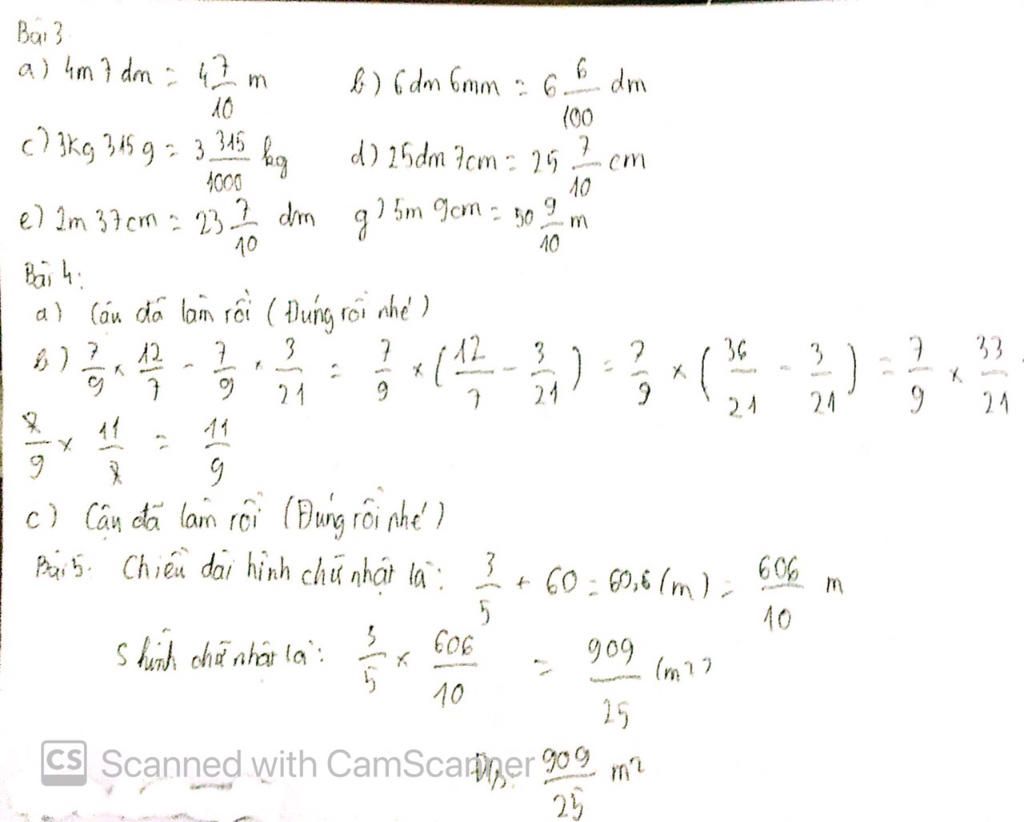 Bài 3
a) 4m 7dm = 4 7/10 m b) 6dm 6mm = 6 6/100 dm
c) 3kg 315g = 3 315/1000 kg d) 25dm 7cm = 25 7/10 cm
e) 2m 37cm = 23 7/10 dm g) 5m 9cm = 50 9/10 m
Bài 4:
a) Cậu đã làm rồi (Đúng rồi nhé)
b) 7/9 × 12/7 - 7/9 × 3/21 = 7/9 × (12/7 - 3/21) = 7/9 × (36/21 - 3/21) = 7/9 × 33/21
7/9 × 11/7 = 11/9
c) Cậu đã làm rồi (Đúng rồi nhé)
Bài 5. Chiều dài hình chữ nhật là: 3/5 + 60 = 60,6 (m) = 606/10 m
S hình chữ nhật là: 3/5 × 606/10 = 909/25 (m²)
Đ/s: 909/25 m²
CS Scanned with CamScanner